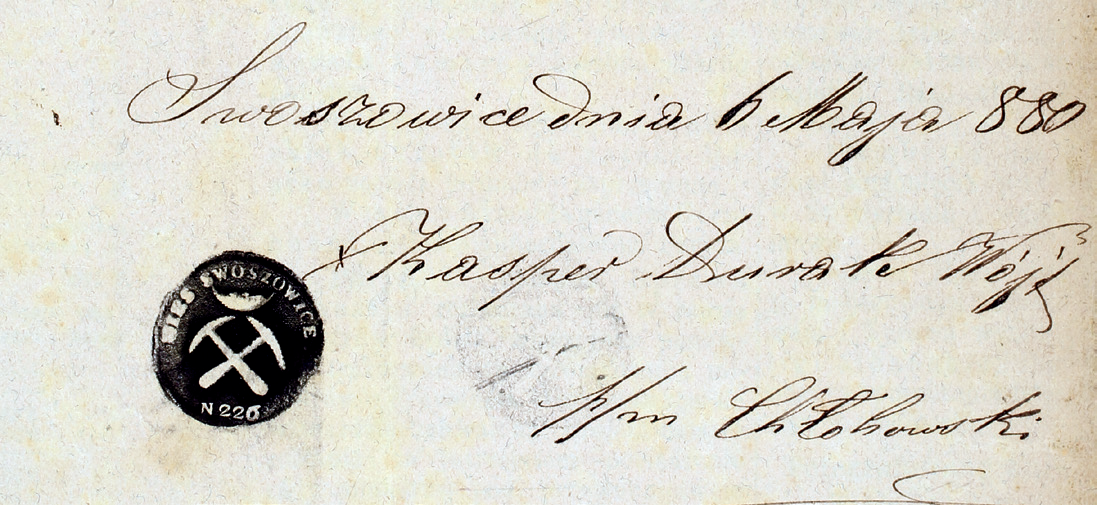 Swoszowice dnia 6 Maja 880
x Kasper Durak Wójt
WIES SWOSZOWICE
N 226
p/m